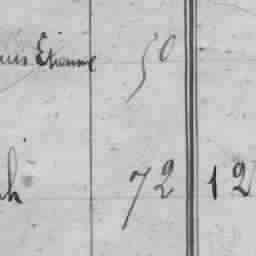 Etienne 50
72 12